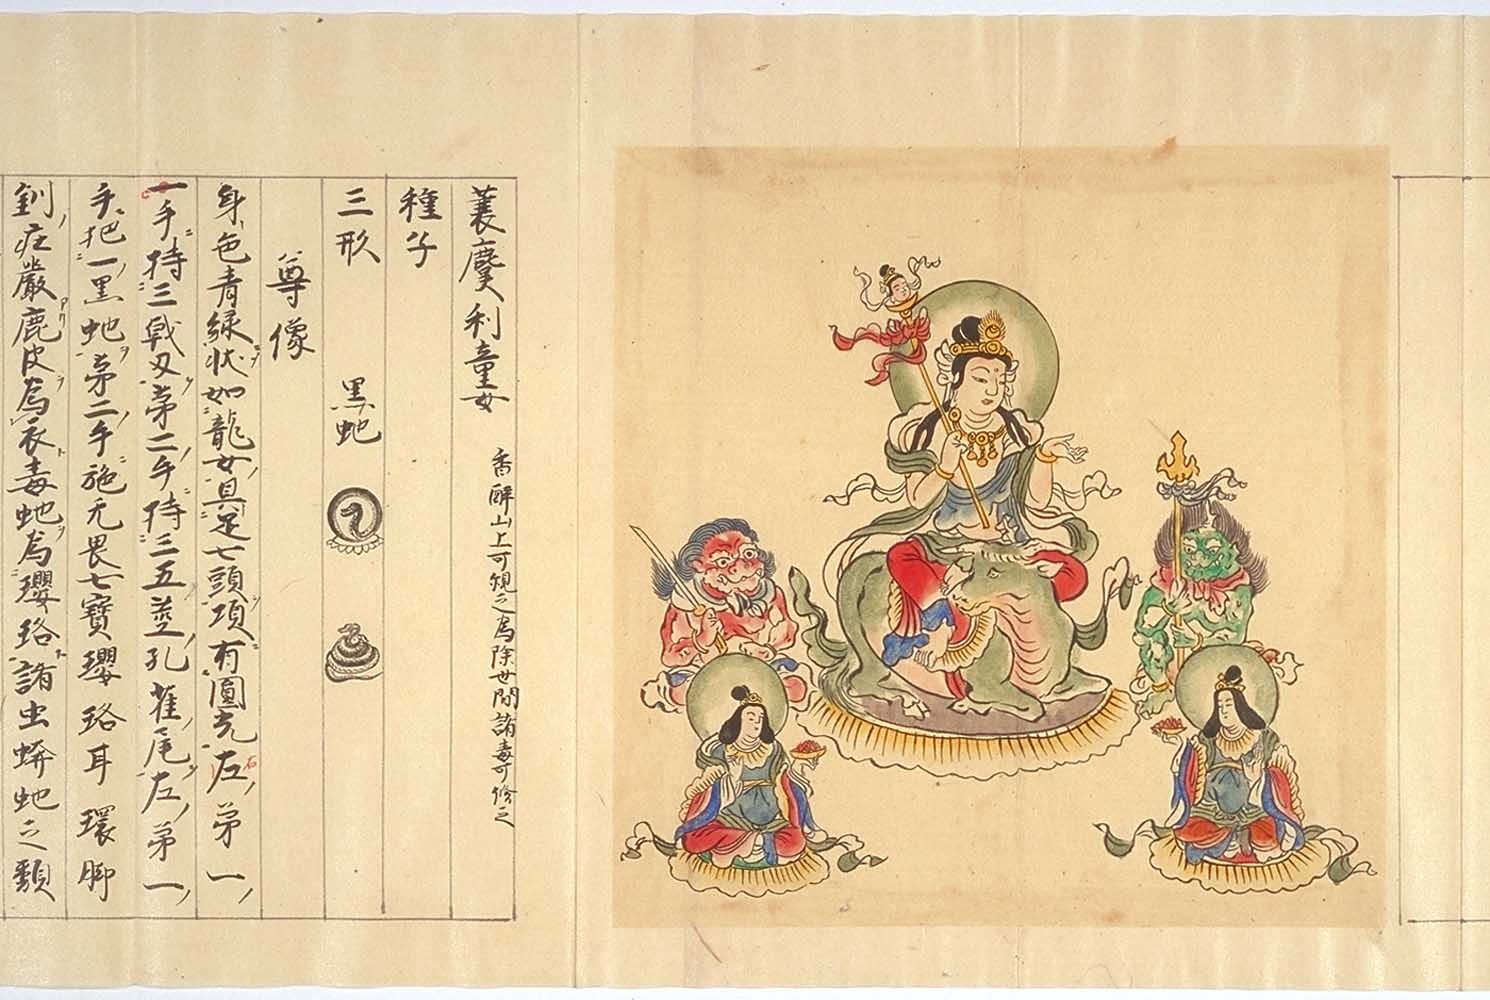 蘘麌利童女 香醉山上可観之為除世間諸毒可修之
種子
三形 黒虵
尊像
身色青緑状如龍女具足七頭項有圓光左右苐一
一手持三戟叉苐二手持三五莖孔雀尾左苐一
手把一黒虵苐二手施无畏七寶瓔珞耳環脚
釧庄嚴鹿皮為衣毒虵為瓔珞諸虫虵之類